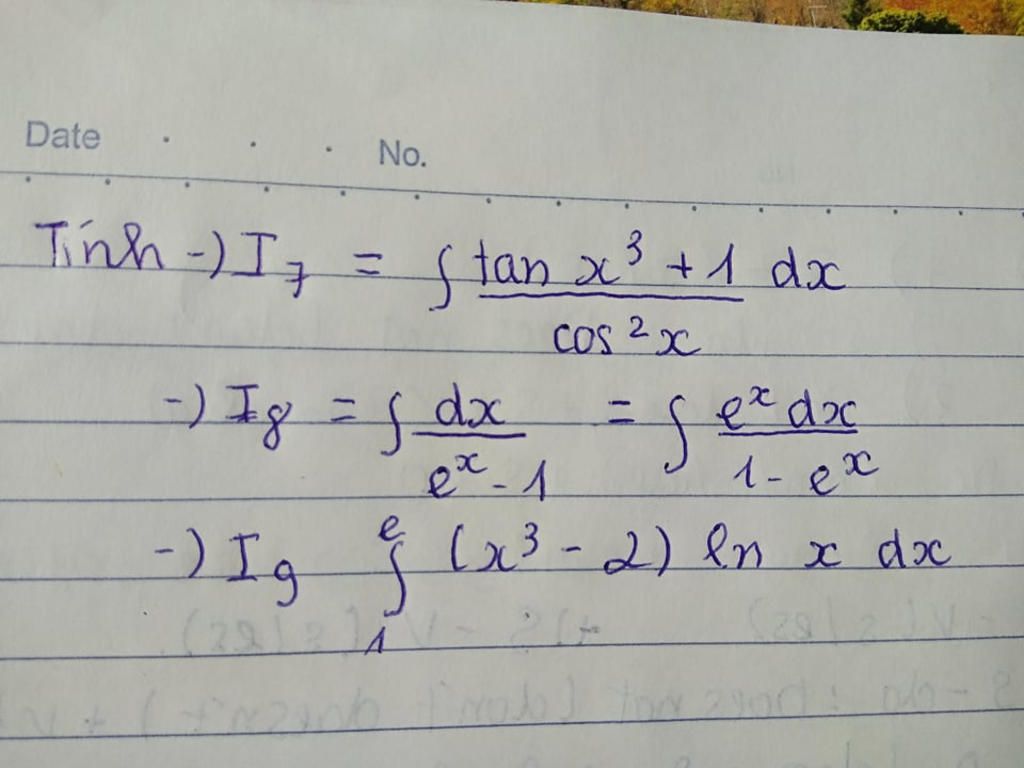 Date . . . No.
Tính -) I₇ = ∫ (tan x³ + 1)/(cos² x) dx
-) I₈ = ∫ dx/(eˣ - 1) = ∫ (eˣ dx)/(1 - eˣ)
-) I₉ ∫₁ᵉ (x³ - 2) ln x dx